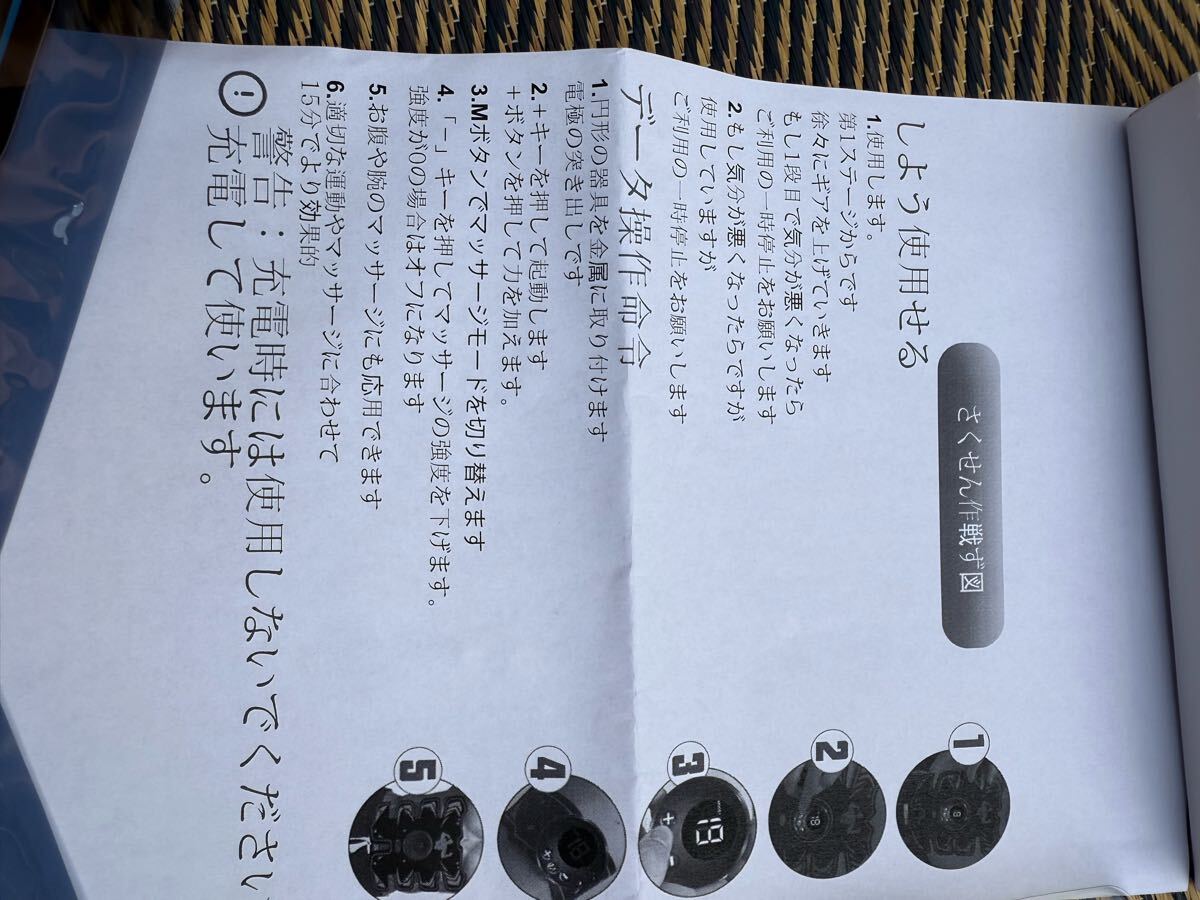 さくせん作戦ず図
しよう使用せる
1.使用します。
第1ステージからです
徐々にギアを上げていきます
もし1段目で気分が悪くなったら
ご利用の一時停止をお願いします
2.もし気分が悪くなったらですが
使用していますが
ご利用の一時停止をお願いします
データ操作命令
1.円形の器具を金属に取り付けます
電極の突き出しです
2.+キーを押して起動します
+ボタンを押して力を加えます。
3.Mボタンでマッサージモードを切り替えます
4.「-」キーを押してマッサージの強度を下げます。
強度が0の場合はオフになります
5.お腹や腕のマッサージにも応用できます
6.適切な運動やマッサージに合わせて
15分でより効果的
警告：充電時には使用しないでください
充電して使います。
1
2
18
3
19
+
-
4
18
5